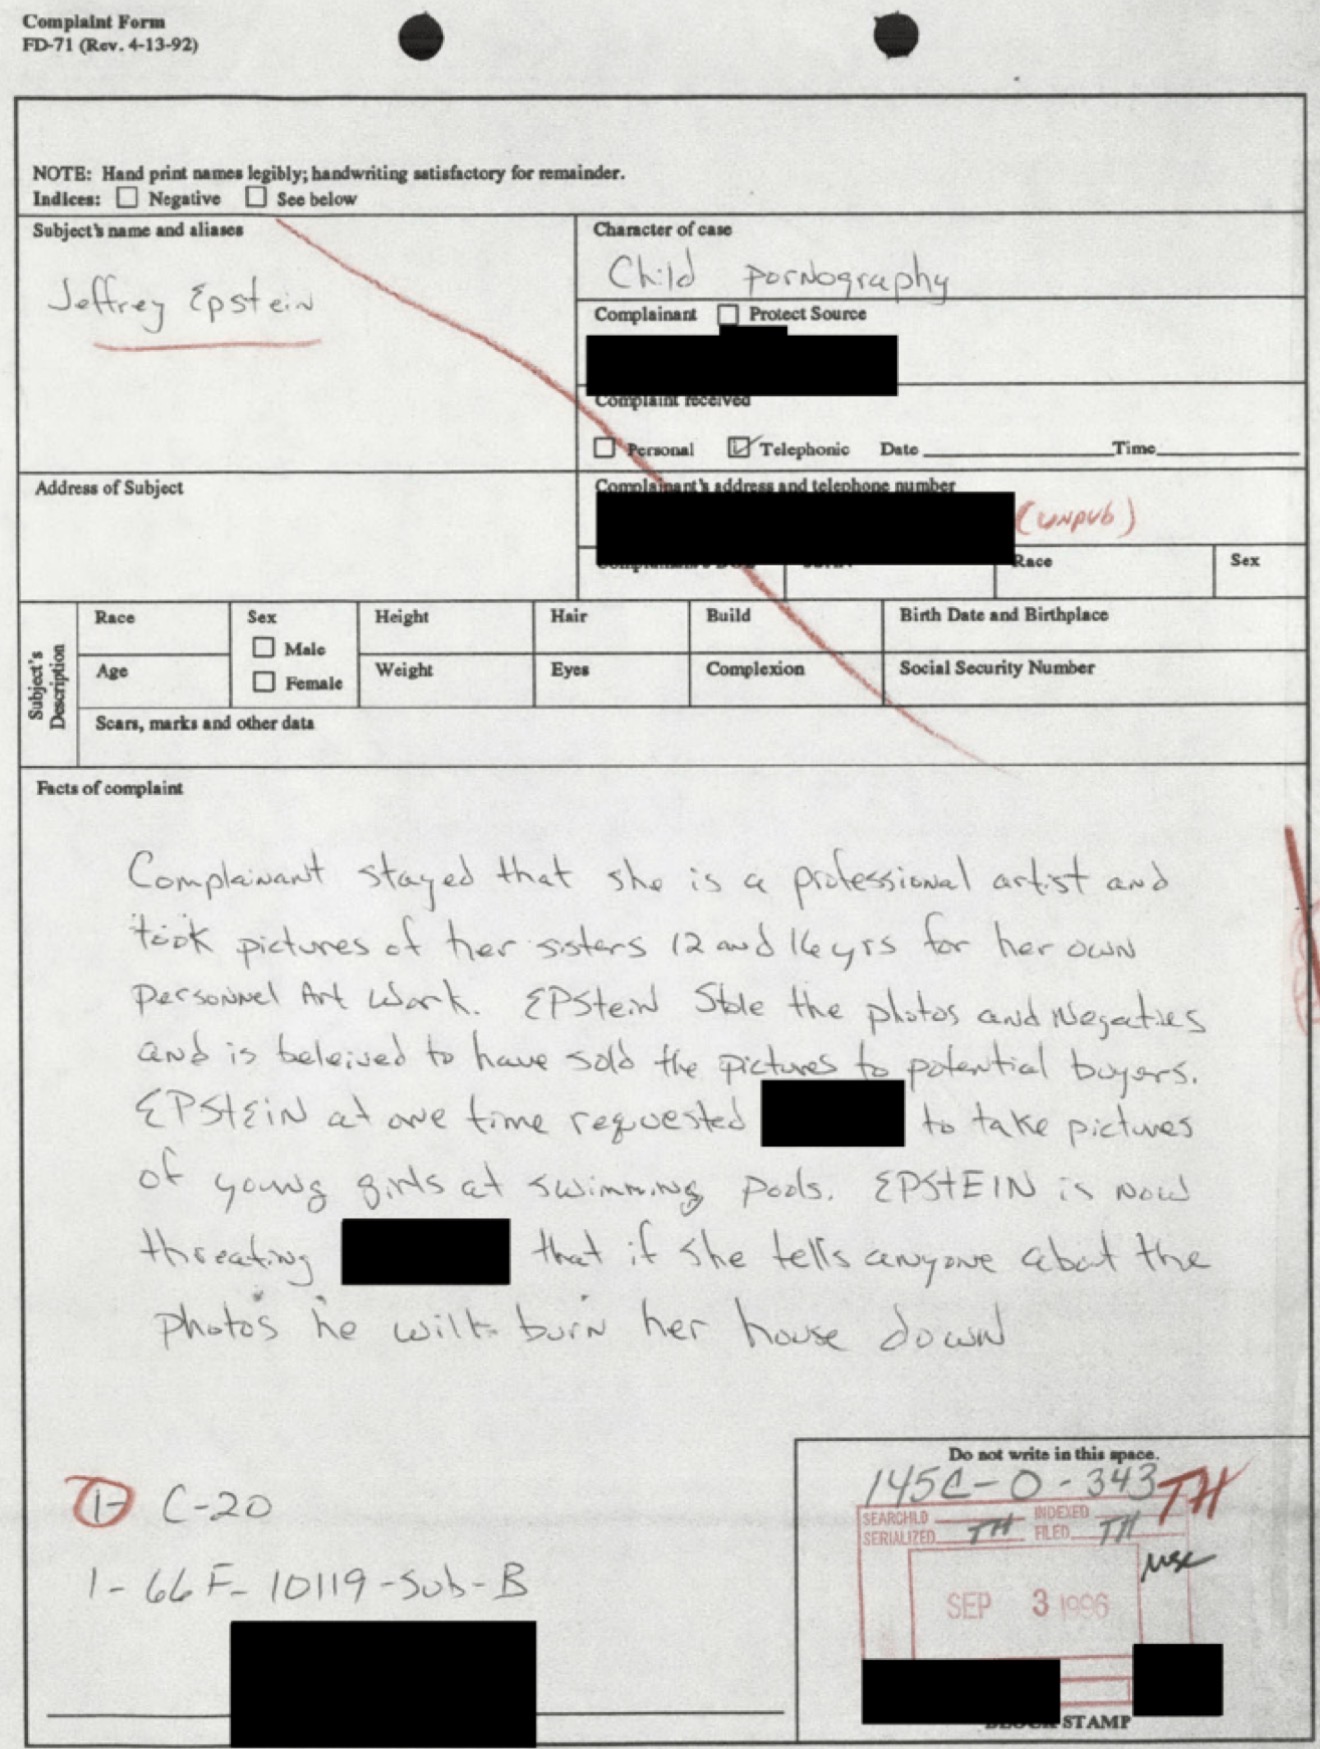 Complaint Form
FD-71 (Rev. 4-13-92)
NOTE: Hand print names legibly; handwriting satisfactory for remainder.
Indices: Negative See below
Subject's name and aliases
Jeffrey Epstein
Character of case
Child pornography
Complainant Protect Source
Complaint received
Personal Telephonic Date Time
Address of Subject
Complainant's address and telephone number
(unpub)
Race
Sex
Subject's
Description
Race
Sex
Male
Female
Height
Hair
Build
Birth Date and Birthplace
Age
Weight
Eyes
Complexion
Social Security Number
Scars, marks and other data
Facts of complaint
Complainant stayed that she is a professional artist and
took pictures of her sisters 12 and 16 yrs for her own
personnel Art work. EPStein Stole the photos and Negatives
and is beleived to have sold the pictures to potential buyers.
EPStEiN at one time requested to take pictures
of young girls at swimming pools. EPStEIN is now
threating that if she tells anyone about the
photos he will burn her house down
1- C-20
1- 66F-10119-Sub-B
Do not write in this space.
145C-0-343
TH
SEARCHED INDEXED
SERIALIZED TH FILED TH
SEP 3 1996
STAMP